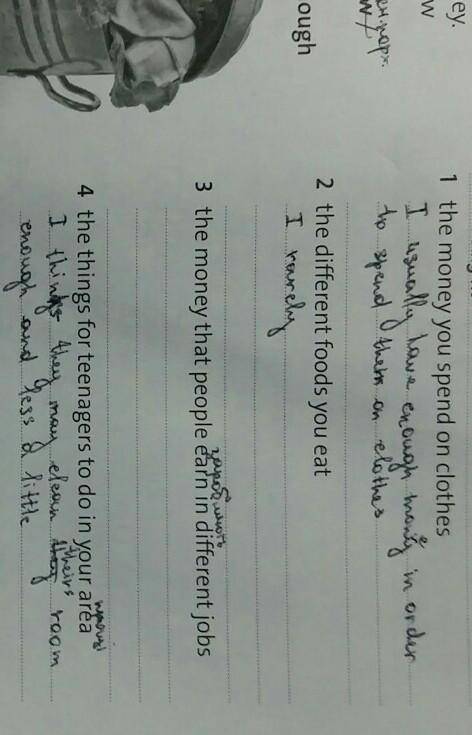 ey.
w
ough
1 the money you spend on clothes
I usually have enough money in order
to spend them on clothes
2 the different foods you eat
I rarely
3 the money that people earn in different jobs
4 the things for teenagers to do in your area
theirs
I things they may clean they room
enough and less a little